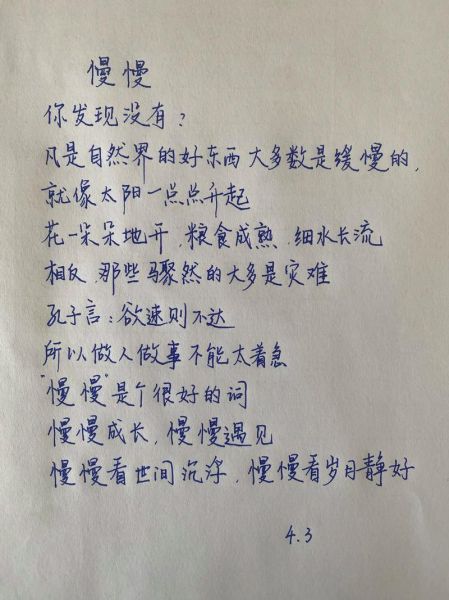 慢慢
你发现没有？
凡是自然界的好东西大多数是缓慢的，
就像太阳一点点升起
花一朵朵地开，粮食成熟，细水长流
相反，那些骤然的大多是灾难
孔子言：欲速则不达
所以做人做事不能太着急
"慢慢"是个很好的词
慢慢成长，慢慢遇见
慢慢看世间沉浮，慢慢看岁月静好
4.3